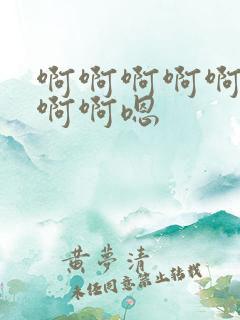 啊啊啊啊啊
啊啊嗯
黄夢清
未经同意禁止转载